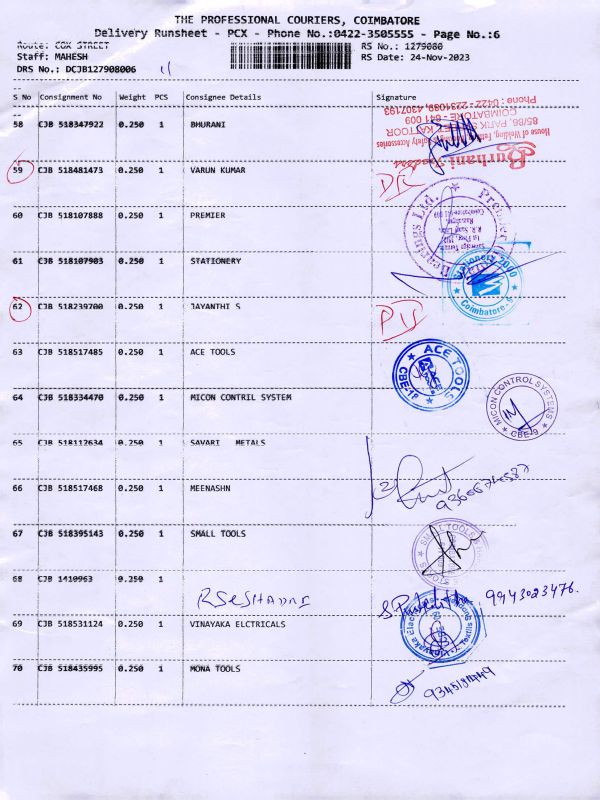 THE PROFESSIONAL COURIERS, COIMBATORE
Delivery Runsheet - PCX - Phone No.:0422-3505555 - Page No.:6
Route: COX STREET RS No.: 1279080
Staff: MAHESH RS Date: 24-Nov-2023
DRS No.: DCJB127908006
--
S No Consignment No Weight PCS Consignee Details Signature
--
58 CJB 518347922 0.250 1 BHURANI
Burhani Traders
House of Welding,
COIMBATORE - 641 009
Phone : 0422 - 2231089, 4307193
59 CJB 518481473 0.250 1 VARUN KUMAR
60 CJB 518107888 0.250 1 PREMIER
Premier Bearings Ltd.
61 CJB 518107903 0.250 1 STATIONERY
Stationery 2000
Coimbatore-9
62 CJB 518239700 0.250 1 JAYANTHI S
63 CJB 518517485 0.250 1 ACE TOOLS
ACE TOOLS
CBE-18
64 CJB 518334470 0.250 1 MICON CONTRIL SYSTEM
MICON CONTROL SYSTEMS
CBE-9
65 CJB 518112634 0.250 1 SAVARI METALS
66 CJB 518517468 0.250 1 MEENASHN
67 CJB 518395143 0.250 1 SMALL TOOLS
SMALL TOOLS
68 CJB 1410963 0.250 1
9943023476.
69 CJB 518531124 0.250 1 VINAYAKA ELCTRICALS
70 CJB 518435995 0.250 1 MONA TOOLS